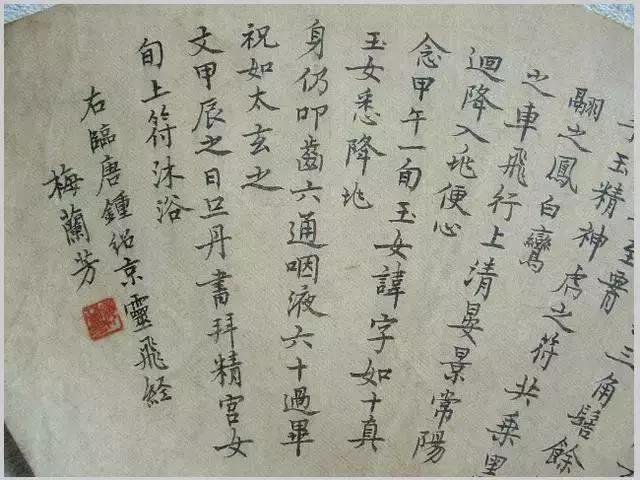 玉精神虎之符共乘黑
翮之鳳白鸞
之車飛行上清晏景常陽
迴降入兆便心
念甲午一旬玉女諱字如十真
玉女悉降兆
身仍叩齒六通咽液六十過畢
祝如太玄之
文甲辰之日旦丹書拜精宮女
旬上符沐浴
右臨唐鍾紹京靈飛経
梅蘭芳